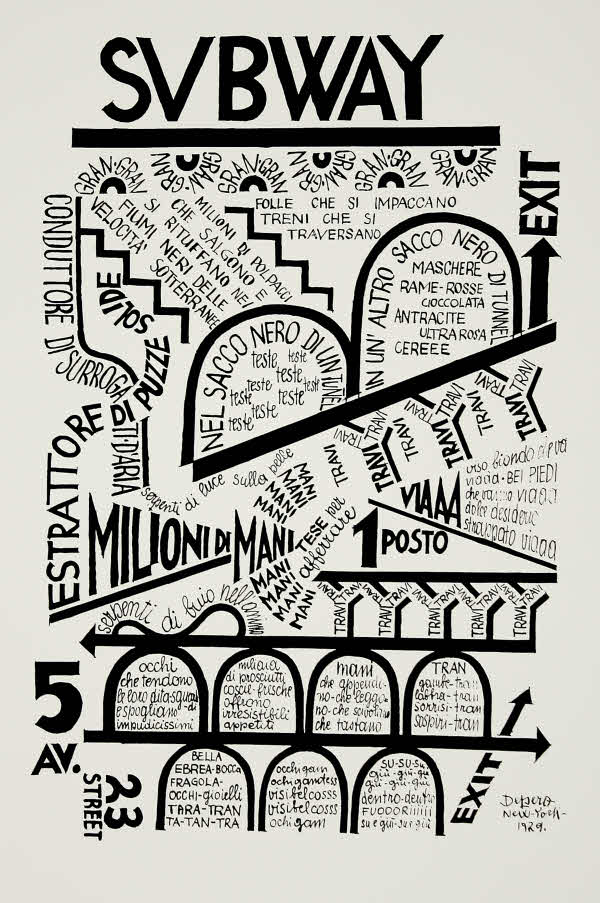 SVBWAY
GRAN-GRAN
GRAN-GRAN
GRAN-GRAN
EXIT
CONDUTTORE DI SURROGATI D'ARIA
VELOCITA'
FIUMI NERI DELLE SOTTERRANEE
SI RITUFFANO NEL
CHE SALGONO E
MILIONI DI POLPACCI
FOLLE CHE SI IMPACCANO
TRENI CHE SI
TRAVERSANO
ESTRATTORE DI PUZZE SOLIDE
NEL SACCO NERO DI UN TUNNEL
teste teste
teste teste
teste teste teste
teste teste
teste
IN UN' ALTRO SACCO NERO DI TUNNEL
MASCHERE
RAME-ROSSE
CIOCCOLATA
ANTRACITE
ULTRA ROSA
CEREEE
TRAVI TRAVI TRAVI TRAVI TRAVI TRAVI TRAVI TRAVI TRAVI
serpenti di luce sulla pelle
MILIONI DI MANI
MANI
MANI
MANI
MANI
MANI
MANI
MANI
MANI
TESE per afferrare
1 POSTO
VIAAA
viso biondo
viaaa - BEI PIEDI
che vanno viaaa
dolce desiderio
strappato viaaa
serpenti di buio
TRAVI TRAVI TRAVI TRAVI TRAVI TRAVI TRAVI TRAVI TRAVI
occhi
che tendono
le loro dita-sguardi
e spogliano
impudicissimi
miliaia
di prosciutti
coscie-frische
offrono
irresistibili
appetiti
mani
che appendi-
no-che leggo-
no-che scivolano
che tastano
TRAN
gambe-tran
labbra-tran
sorrisi-tran
sospiri-tran
5
AV.
23
STREET
BELLA
EBREA-BOCCA
FRAGOLA-
OCCHI-gioielli
TARA-TRAN
TA-TAN-TRA
visibelcosss
visibelcosss
SU-SU-SU
giù-giù-giù
giù-giù-giù
dentro-dentro
FUODORIIIIII
su e giù-su e giù
EXIT
Depero
New-York-
1929.